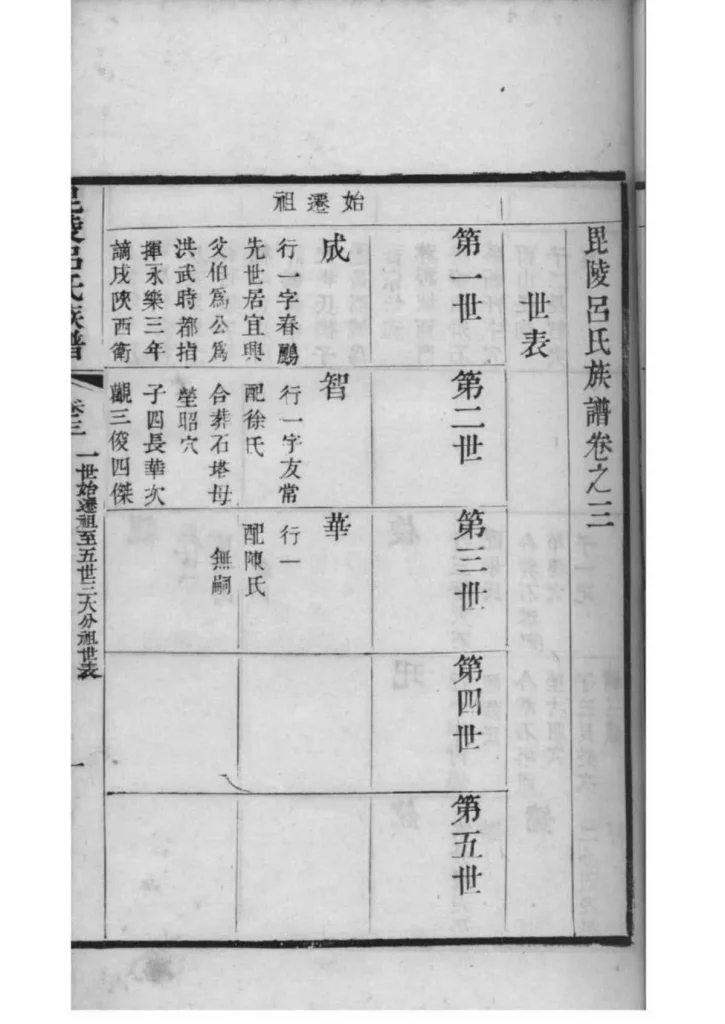 毘陵呂氏族譜卷之三
世表
第一世
第二世
第三世
第四世
第五世
始遷祖
成
行一字春鷳
先世居宜興
父伯爲公爲
洪武時都指
揮永樂三年
謫戍陝西衛
智
行一字友常
配徐氏
合葬石塔母
塋昭穴
子四長華次
觀三俊四傑
華
行一
配陳氏
無嗣
毘陵呂氏族譜
卷三
一世始遷祖至五世三大分祖世表
一